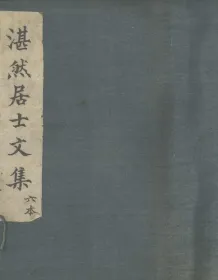 湛然居士文集
六本